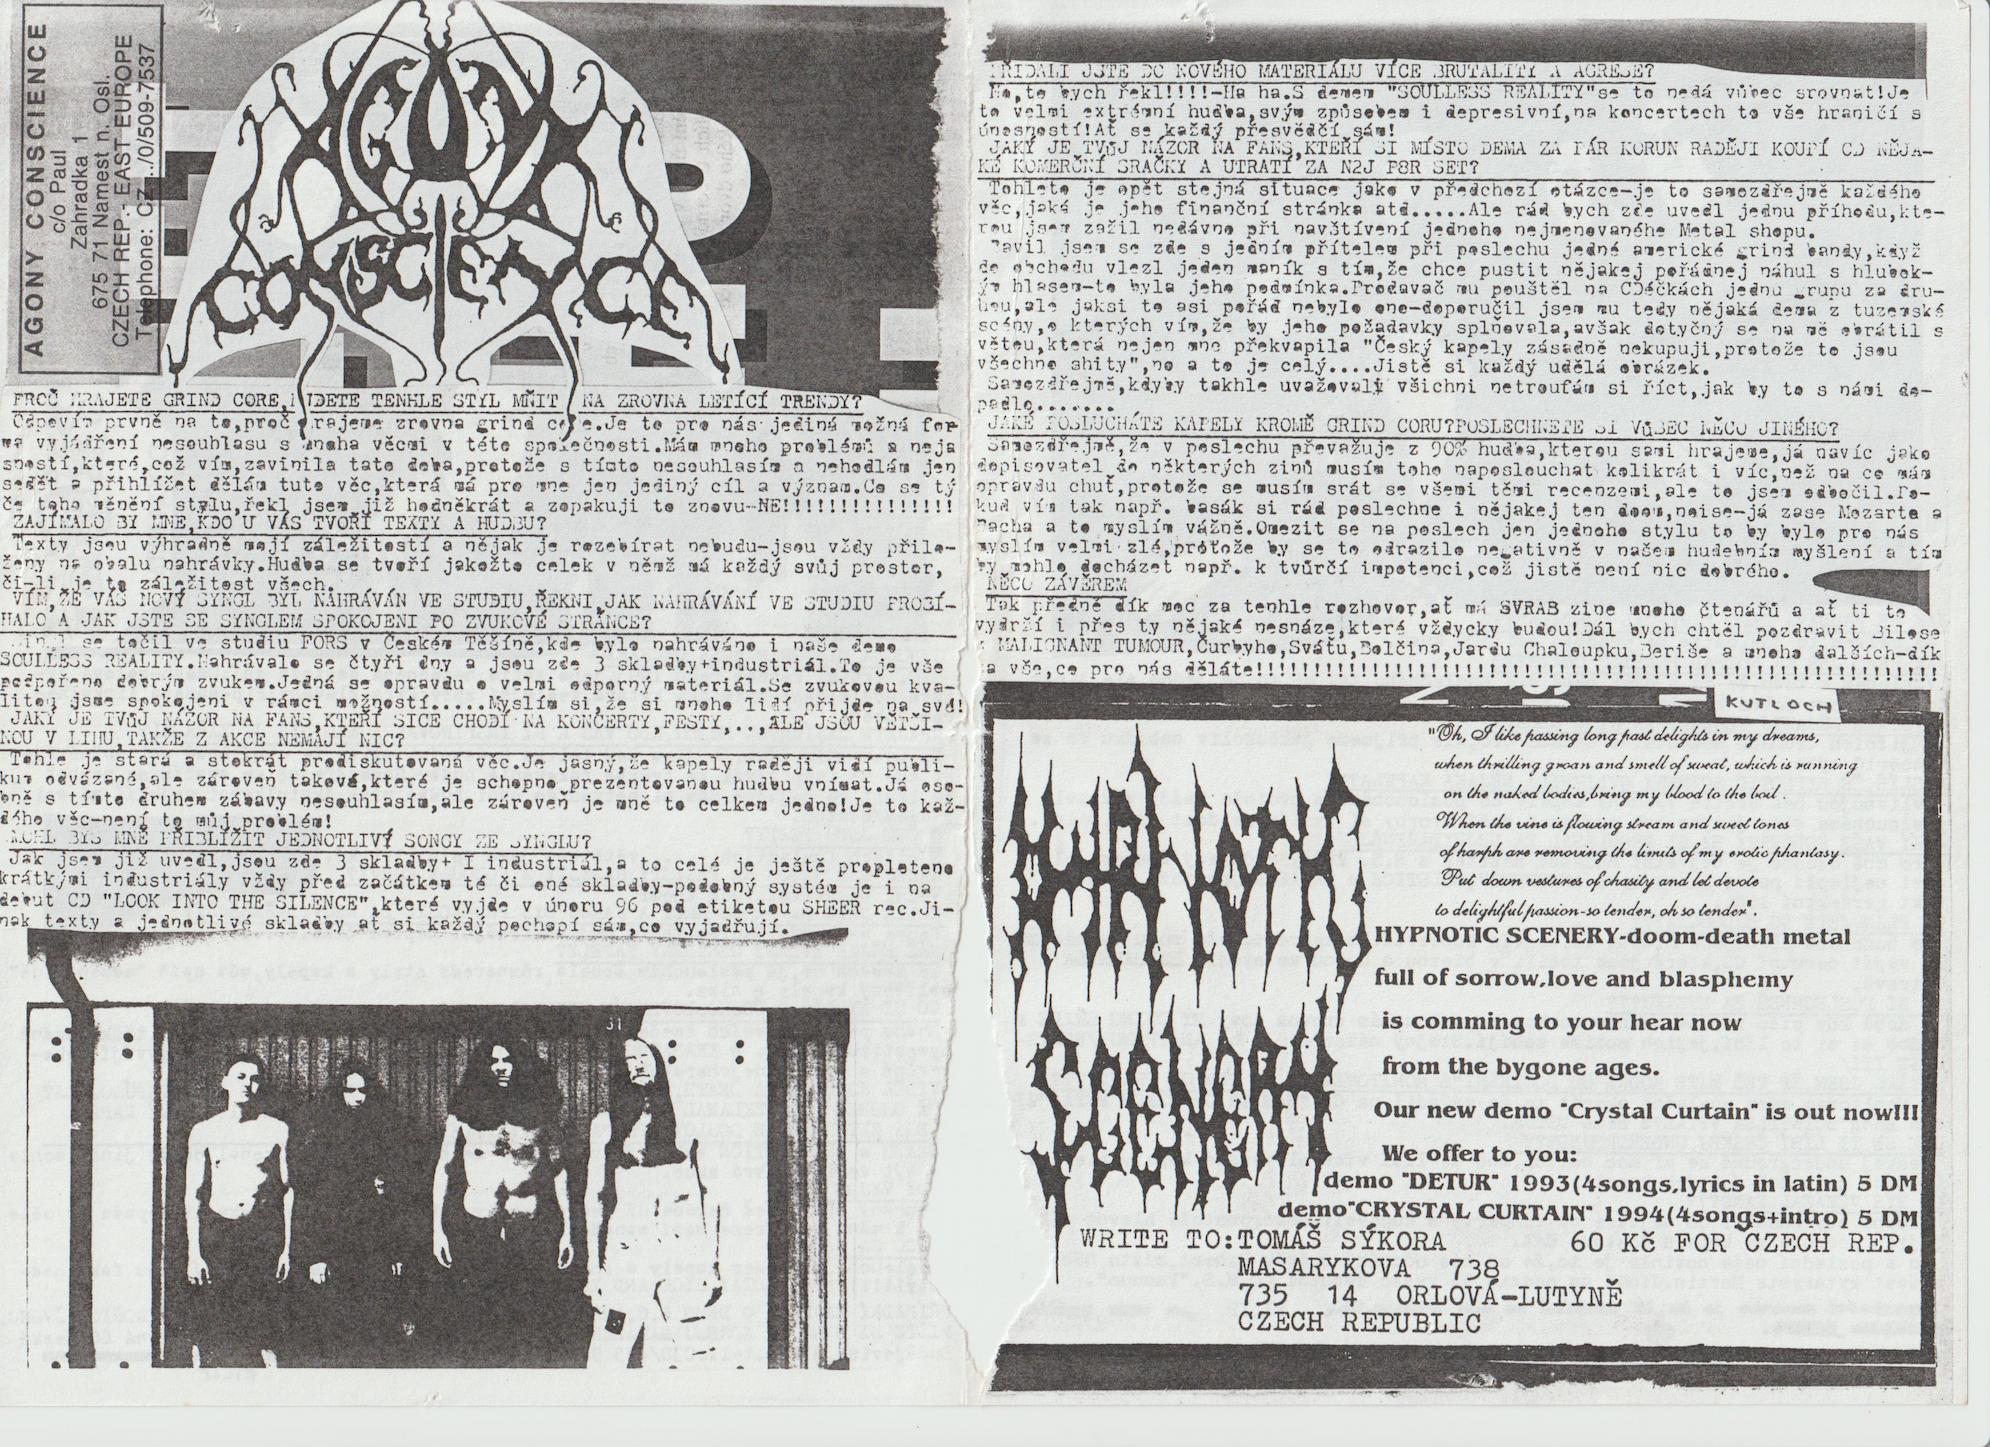 AGONY CONSCIENCE
c/o Paul
Zahradka 1
675 71 Namest n. Osl.
CZECH REP.- EAST EUROPE
Telephone: CZ ../0/509-7537
AGONY
CONSCIENCE
PROČ HRAJETE GRIND CORE, DETE TENHLE STYL MŇIT NA ZROVNA LETÍCÍ TRENDY?
Odpovím prvně na to,proč hrajeme zrovna grind core.Je to pro nás jediná možná for
ma vyjádření nesouhlasu s mnoha věcmi v této společnosti.Mám mnoho problémů a neja
sností,které,což vím,zavinila tato doba,protože s tímto nesouhlasím a nehodlám jen
sedět a přihlížet dělám tuto věc,která má pro mne jen jediný cíl a význam.Co se tý
če toho měnění stylu,řekl jsem již hodněkrát a zopakuji to znovu-NE!!!!!!!!!!!!!!!
ZAJÍMALO BY MNE,KDO U VÁS TVOŘÍ TEXTY A HUDBU?
Texty jsou výhradně mojí záležitostí a nějak je rozebírat nebudu-jsou vždy přilo-
ženy na obalu nahrávky.Hudba se tvoří jakožto celek v němž má každý svůj prostor,
či-li je to záležitost všech.
VÍM,ŽE VÁŠ NOVÝ SYNGL BYL NAHRÁVÁN VE STUDIU,ŘEKNI,JAK NAHRÁVÁNÍ VE STUDIU PROBÍ-
HALO A JAK JSTE SE SYNGLEM SPOKOJENI PO ZVUKOVÉ STRÁNCE?
se točil ve studiu FORS v Českém Těšíně,kde bylo nahráváno i naše demo
SOULLESS REALITY.Nahrávalo se čtyři dny a jsou zde 3 skladby+industriál.To je vše
podpořeno dobrým zvukem.Jedná se opravdu o velmi odporný materiál.Se zvukovou kva-
litou jsme spokojeni v rámci možností.....Myslím si,že si mnoho lidí přijde na své!
JAKÝ JE TVůJ NÁZOR NA FANS,KTEŘÍ SICE CHODÍ NA KONCERTY,FESTY,..,ALE JSOU VĚTŠI-
NOU V LIHU,TAKŽE Z AKCE NEMAJÍ NIC?
Tohle je stará a stokrát prodiskutovaná věc.Je jasný,že kapely raději vidí publi-
kum odvázané,ale zároveň takové,které je schopno prezentovanou hudbu vnímat.Já oso-
bně s tímto druhem zábavy nesouhlasím,ale zároveň je mně to celkem jedno!Je to kaž-
dého věc-není to můj problém!
MOHL BYS MNĚ PŘIBLÍŽIT JEDNOTLIVÝ SONGY ZE SYNGLU?
Jak jsem již uvedl,jsou zde 3 skladby+ I industriál,a to celé je ještě propleteno
krátkými industriály vždy před začátkem té či oné skladby-podobný systém je i na
debut CD "LOOK INTO THE SILENCE",které vyjde v únoru 96 pod etiketou SHEER rec.Ji-
nak texty a jednotlivé skladby ať si každý pochopí sám,co vyjadřují.
PŘIDALI JSTE DO NOVÉHO MATERIÁLU VÍCE BRUTALITY A AGRESE?
No,to bych řekl!!!!-Ha ha.S demem "SOULLESS REALITY"se to nedá vůbec srovnat!Je
to velmi extrémní hudba,svým způsobem i depresivní,na koncertech to vše hraničí s
únosností!Ať se každý přesvědčí sám!
JAKÝ JE TVůJ NÁZOR NA FANS,KTEŘÍ SI MÍSTO DEMA ZA PÁR KORUN RADĚJI KOUPÍ CD NĚJA-
KÉ KOMERČNÍ SRAČKY A UTRATÍ ZA N2J P8R SET?
Tohleto je opět stejná situace jako v předchozí otázce-je to samozdřejmě každého
věc,jaká je jeho finanční stránka atd.....Ale rád bych zde uvedl jednu příhodu,kte-
rou jsem zažil nedávno při navštívení jednoho nejmenovaného Metal shopu.
Bavil jsem se zde s jedním přítelem při poslechu jedné americké grind bandy,když
do obchodu vlezl jeden maník s tím,že chce pustit nějakej pořádnej náhul s hlubok-
ým hlasem-to byla jeho podmínka.Prodavač mu pouštěl na CDéčkách jednu grupu za dru-
hou,ale jaksi to asi pořád nebylo ono-doporučil jsem mu tedy nějaká dema z tuzemské
scény,o kterých vím,že by jeho požadavky splňovala,avšak dotyčný se na mě obrátil s
větou,která nejen mne překvapila "Český kapely zásadně nekupuji,protože to jsou
všechno shity",no a to je celý....Jistě si každý udělá obrázek.
Samozdřejmě,kdyby takhle uvažovali všichni netroufám si říct,jak by to s námi do-
padlo........
JAKÉ POSLUCHÁTE KAPELY KROMĚ GRIND CORU?POSLECHNETE SI VůBEC NĚCO JINÉHO?
Samozdřejmě,že v poslechu převažuje z 90% hudba,kterou sami hrajeme,já navíc jako
dopisovatel do některých zinů musím toho naposlouchat kolikrát i víc,než na co mám
opravdu chuť,protože se musím srát se všemi těmi recenzemi,ale to jsem odbočil.Po-
kud vím tak např. basák si rád poslechne i nějakej ten doom,noise-já zase Mozarta a
Bacha a to myslím vážně.Omezit se na poslech jen jednoho stylu to by bylo pro nás
myslím velmi zlé,protože by se to odrazilo negativně v našem hudebním myšlení a tím
by mohlo docházet např. k tvůrčí impotenci,což jistě není nic dobrého.
NĚCO ZÁVĚREM
Tak předně dík moc za tenhle rozhovor,ať má SVRAB zine mnoho čtenářů a ať ti to
vydrží i přes ty nějaké nesnáze,které vždycky budou!Dál bych chtěl pozdravit Bilose
z MALIGNANT TUMOUR,Čurbyho,Sváťu,Bolčina,Jardu Chaloupku,Beriše a mnoho dalších-dík
za vše,co pro nás děláte!!!!!!!!!!!!!!!!!!!!!!!!!!!!!!!!!!!!!!!!!!!!!!!!!!
KUTLOCH
HYPNOTIC
SCENERY
"Oh, I like passing long past delights in my dreams,
when thrilling groan and smell of sweat, which is running
on the naked bodies,bring my blood to the boil.
When the vine is flowing stream and sweet tones
of harph are removing the limits of my erotic phantasy.
Put down vestures of chasity and let devote
to delightful passion-so tender, oh so tender".
HYPNOTIC SCENERY-doom-death metal
full of sorrow,love and blasphemy
is comming to your hear now
from the bygone ages.
Our new demo "Crystal Curtain" is out now!!!
We offer to you:
demo "DETUR" 1993(4songs,lyrics in latin) 5 DM
demo"CRYSTAL CURTAIN" 1994(4songs+intro) 5 DM
WRITE TO:TOMÁŠ SÝKORA 60 Kč FOR CZECH REP.
MASARYKOVA 738
735 14 ORLOVÁ-LUTYNĚ
CZECH REPUBLIC